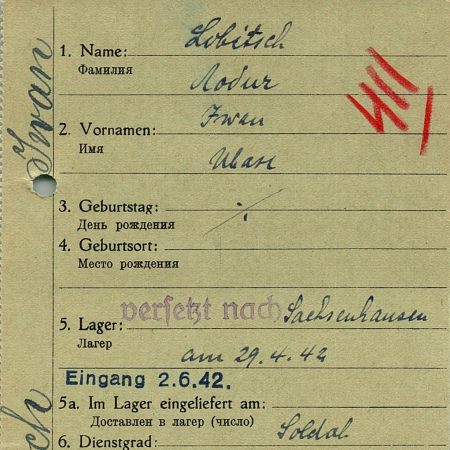 1. Name: Lobitsch
Фамилия Лобич
2. Vornamen: Iwan
Имя Иван
3. Geburtstag:
День рождения
4. Geburtsort:
Место рождения
versetzt nach Sachsenhausen
5. Lager:
Лагер am 29.4.42
Eingang 2.6.42.
5a. Im Lager eingeliefert am:
Доставлен в лагер (число)
6. Dienstgrad: Soldat
Iwan
ch